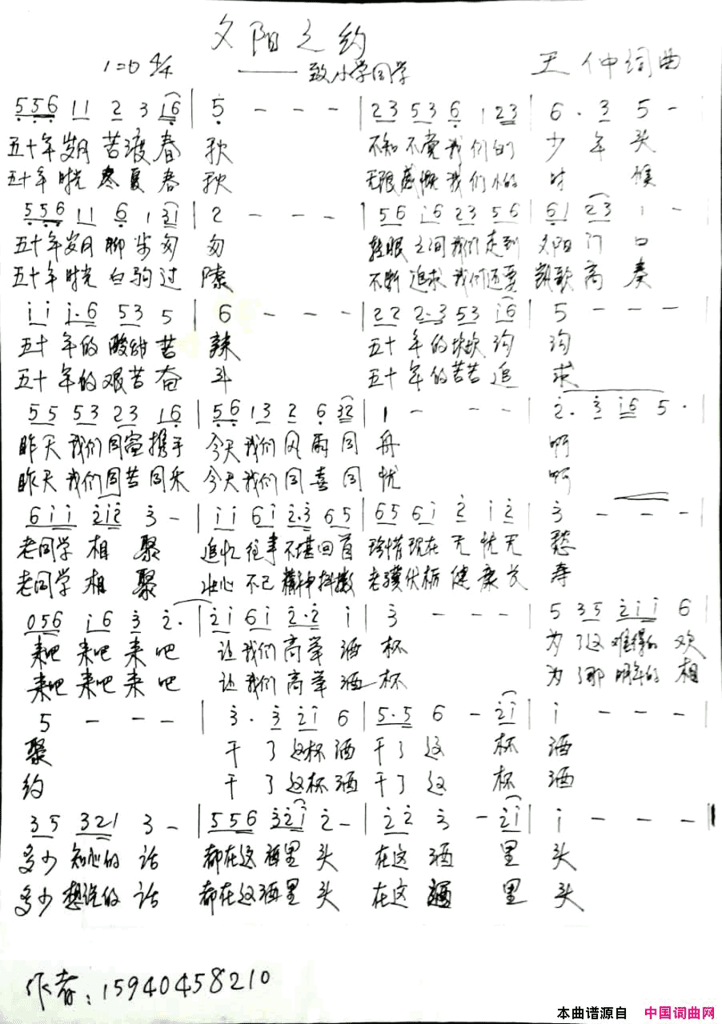 夕阳之约
1=D 4/4 ——致小学同学 王仲词曲
5 5 6 1 1 2 3 1 6 | 5 - - - | 2 3 5 3 6 1 2 3 | 6 . 3 5 - |
五十年岁月苦渡春 秋 不知不觉我们的 少年头
五十年时光寒夏春 秋 无限感慨我们小的 时候
5 5 6 1 1 6 1 3 1 | 2 - - - | 5 6 1 6 2 3 5 6 | 6 1 2 3 1 - |
五十年岁月脚步匆 匆 转眼之间我们走到 夕阳门口
五十年时光白驹过 隙 不断追求我们还要 凯歌高奏
i i i . 6 5 3 5 | 6 - - - | 2 2 2 . 3 5 3 i 6 | 5 - - - |
五十年的酸甜苦 辣 五十年的坎坎沟 沟
五十年的艰苦奋 斗 五十年的苦苦追 求
5 5 5 3 2 3 1 6 | 5 6 1 3 2 6 3 2 | 1 - - - | 2 . 3 i 6 5 . |
昨天我们同窗携手 今天我们风雨同 舟 啊
昨天我们同苦同乐 今天我们同喜同 忧 啊
6 i i 2 i 2 3 - | i i 6 i 2 . 3 6 5 | 6 5 6 i 2 i 2 | 3 - - - |
老同学相聚 追忆往事不堪回首 珍惜现在无忧无 愁
老同学相聚 壮心不已精神抖擞 老骥伏枥健康长 寿
0 5 6 i 6 3 2 . | 2 i 6 i 2 . 2 i | 3 - - - | 5 3 5 2 i i 6 |
来吧来吧来吧 让我们高举酒 杯 为了这难得的欢
来吧来吧来吧 让我们高举酒 杯 为了那明年的相
5 - - - | 3 . 3 2 i 6 | 5 . 5 6 - 2 i | i - - - |
聚 干了这杯酒 干了这杯 酒
约 干了这杯酒 干了这杯 酒
3 5 3 2 1 3 - | 5 5 6 3 2 i 2 - | 2 2 3 - 2 i | i - - - ||
多少知心的话 都在这酒里头 在这酒里 头
多少想说的话 都在这酒里头 在这酒里 头
作者：15940458210
本曲谱源自 中国词曲网